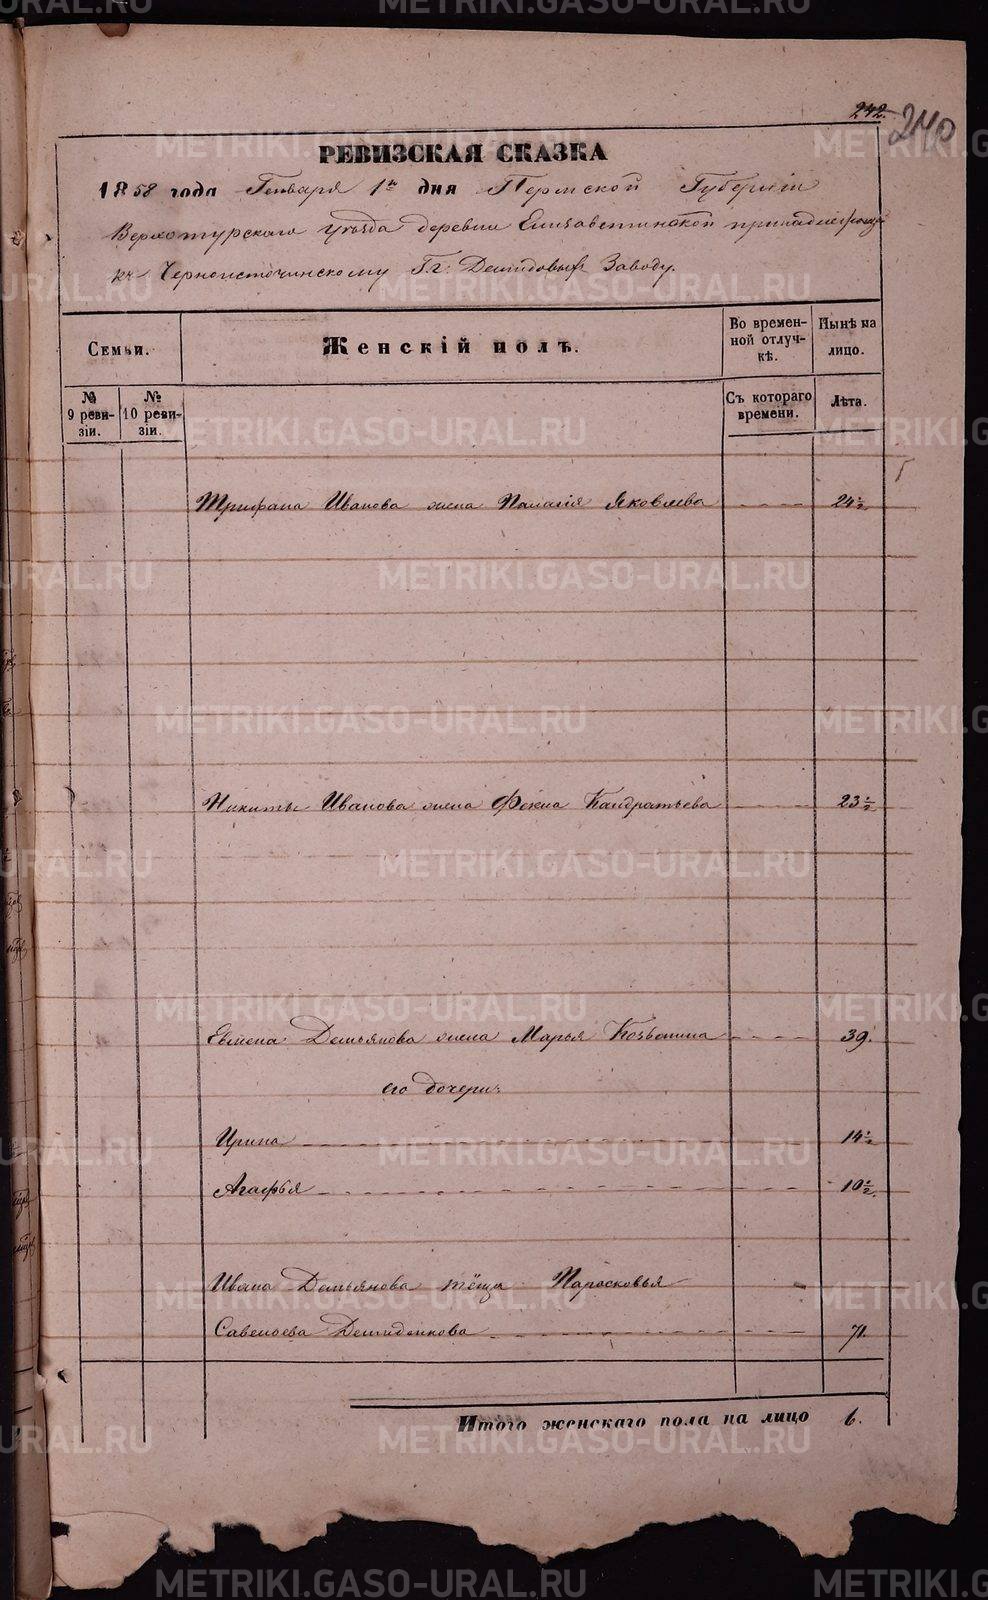 242.
240
РЕВИЗСКАЯ СКАЗКА
1858 года Генваря 1го дня Пермской Губернiи
Верхотурскаго Уѣзда деревни Елизаветинской принадлежаще
къ Черноисточинскому Гг: Демидовыхъ Заводу.
Семьи.
Женскiй полъ.
Во времен-
ной отлуч-
кѣ.
Нынѣ на
лицо.
№
9 реви-
зiи.
№
10 реви-
зiи.
Съ котораго
времени.
Лѣта.
Трифана Иванова жена Палагiя Яковлева 24½
Никиты Иванова жена Фекла Кандратьева 23½
Евмена Демьянова жена Марья Козьмина 39.
его дочери
Ирина 14½
Агафья 10½.
Ивана Демьянова тёща Парасковья
Савельева Демиденкова 71.
Итого женскаго пола на лицо 6.
METRIKI.GASO-URAL.RU